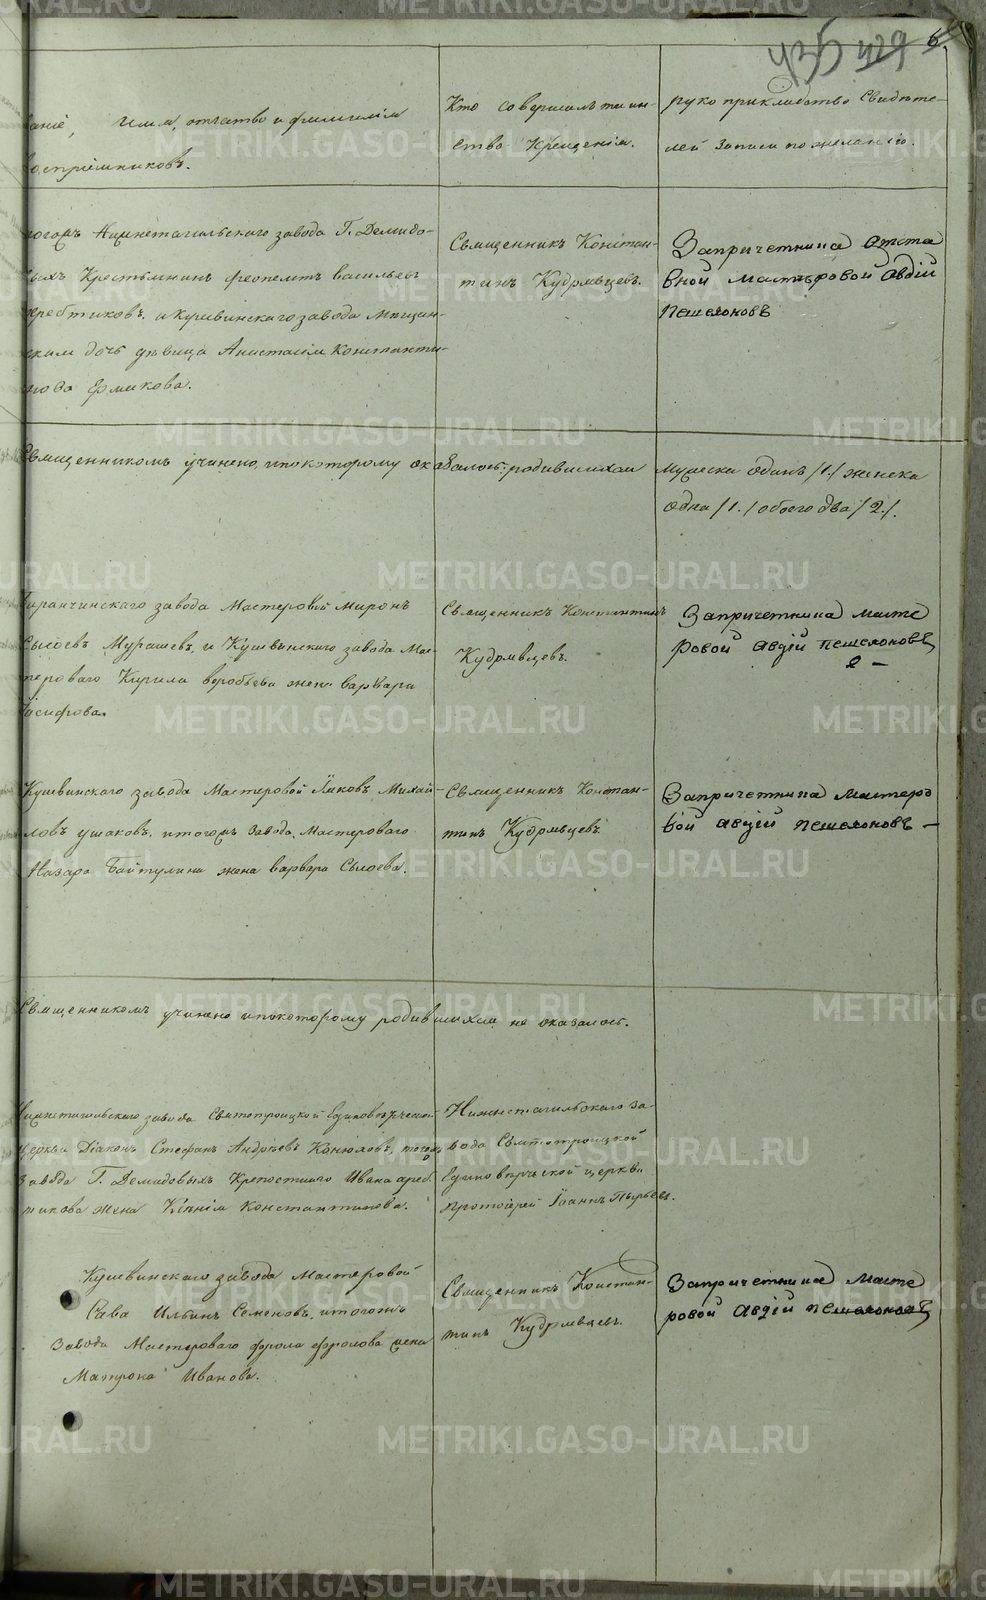 435 429 6.
аніе, Имя, отчество и фамилія
воспріемниковъ.
Кто совершалъ таин-
ство Крещенія.
рукоприкладство Свидѣте-
лей записи по желанію.
тогожъ Нижнетагильскаго завода Г. Демидо-
выхъ Крестьянинъ Феопемптъ Васильевъ
и Кушвинскаго завода Мѣщан-
ская дочь дѣвица Анастасія Константи-
нова Ермакова.
Священникъ Констан-
тинъ Кудрявцевъ.
Запричетника отста
вной мастеровой Авдій
Пешехоновъ
Священникомъ учинено, и по которому оказалось: родившихся
мужеска одинъ /1./ женска
одна /1./ обоего два /2./.
Баранчинскаго завода Мастеровой Миронъ
Сысоевъ Мурашевъ, и Кушвинскаго завода Мас-
тероваго Кирила Воробьева жена Варвара
Іосифова.
Священникъ Константинъ
Кудрявцевъ.
Запричетника масте
ровой Авдій Пешехоновъ
Кушвинскаго завода Мастеровой Яковъ Михай-
ловъ Ушаковъ, и тогожъ завода Мастероваго
Назара Байтулина жена Варвара Сысоева.
Священникъ Констан-
тинъ Кудрявцевъ.
Запричетника мастеро
вой Авдій Пешехоновъ —
Священникомъ учинено и по которому родившихся не оказалось.
Нижнетагильскаго завода Святотроицкой Единовѣрческой
церкви Діаконъ Стефанъ Андреевъ Конюховъ, тогожъ
завода Г. Демидовыхъ Крепостнаго Ивана
жена Ксенія Константинова.
Нижнетагильскаго за-
вода Святотроицкой
Единовѣрческой церкви
протоіерей Іоаннъ Пырьевъ.
Кушвинскаго завода Мастеровой
Сава Ильинъ Семеновъ, и тогожъ
завода Мастероваго Фрола Фролова жена
Матрона Иванова.
Священникъ Констан-
тинъ Кудрявцевъ.
Запричетника масте
ровой Авдій Пешехоновъ
METRIKI.GASO-URAL.RU